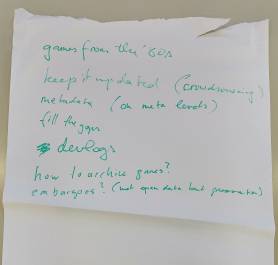 games from the '80s
keep it updated (crowdsourcing)
metadata (on meta levels)
fill the gaps
devlogs
how to archive games?
embargoes? (not open data but preservation)